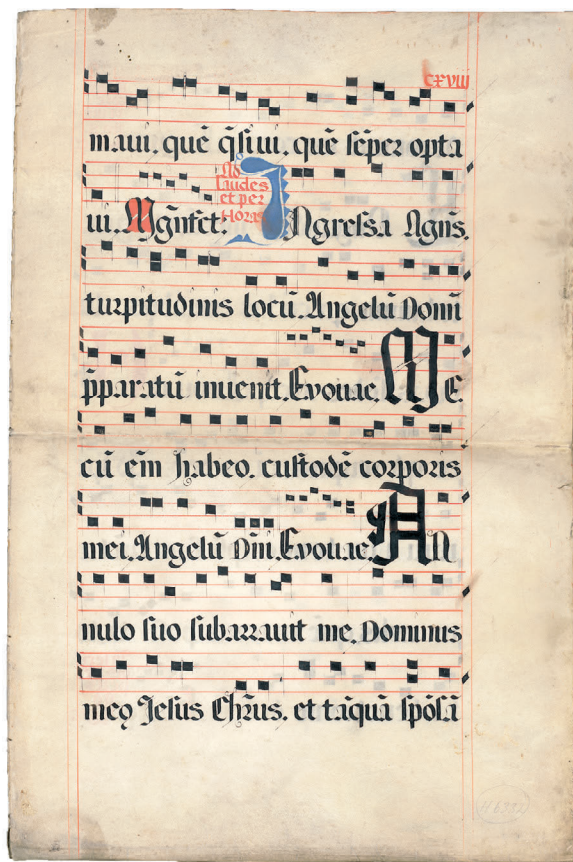 cxviii
maui. quē q̄siui. quē sēper opta
ui. Mgn̄fct.
Ad
laudes
et per
Horas
INgressa Agn̄s.
turpitudinis locū. Angelū Domī
p̄paratū inuenit. Evouae. ME
cū eīm habeo. custodē corporis
mei. Angelū Dn̄i. Evouae. AN
nulo suo subarrauit me. Dominus
meꝯ Jesus Chr̄us. et tāquā spōsā